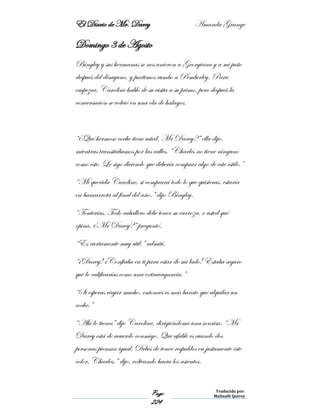 El Diario de Mr. Darcy Amanda Grange
Domingo 3 de Agosto
Bingley y sus hermanas se nos unieron a Georgiana y a mí justo
después del desayuno, y partimos rumbo a Pemberley. Para
empezar, Caroline habló de su visita a su primo, pero después la
conversación se volvió en una oda de halagos.
“¡Qué hermoso coche tiene usted, Mr Darcy!” ella dijo,
mientras transitábamos por las calles. “Charles no tiene ninguno
como éste. Le sigo diciendo que debería comprar algo de este estilo.”
“Mi querida Caroline, si comprara todo lo que quisieras, estaría
en bancarrota al final del año,” dijo Bingley.
“Tonterías. Todo caballero debe tener su carroza, o usted qué
opina, ¿Mr Darcy?” preguntó.
“Es ciertamente muy útil,” admití.
“¡Darcy! ¡Confiaba en ti para estar de mi lado! Estaba seguro
que lo calificarías como una extravagancia.”
“Si esperas viajar mucho, entonces es más barato que alquilar un
coche.”
“Ahí lo tienes” dijo Caroline, dirigiéndome una sonrisa. “Mr
Darcy está de acuerdo conmigo. Que afable es cuando dos
personas piensan igual. Debes de tener respaldos en justamente este
color, Charles,” dijo, volteando hacia los asientos.
Page
224
Traducido por:
Malinalli Quiroz